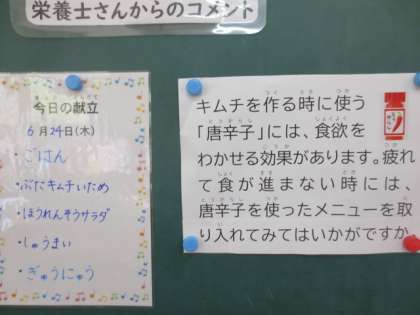 栄養士さんからのコメント
今日の献立
6月24日(木)
・ごはん
・ぶたキムチいため
・ほうれんそうサラダ
・しゅうまい
・ぎゅうにゅう
キムチを作る時に使う
「唐辛子」には、食欲を
わかせる効果があります。疲れ
て食が進まない時には、
唐辛子を使ったメニューを取
り入れてみてはいかがですか。